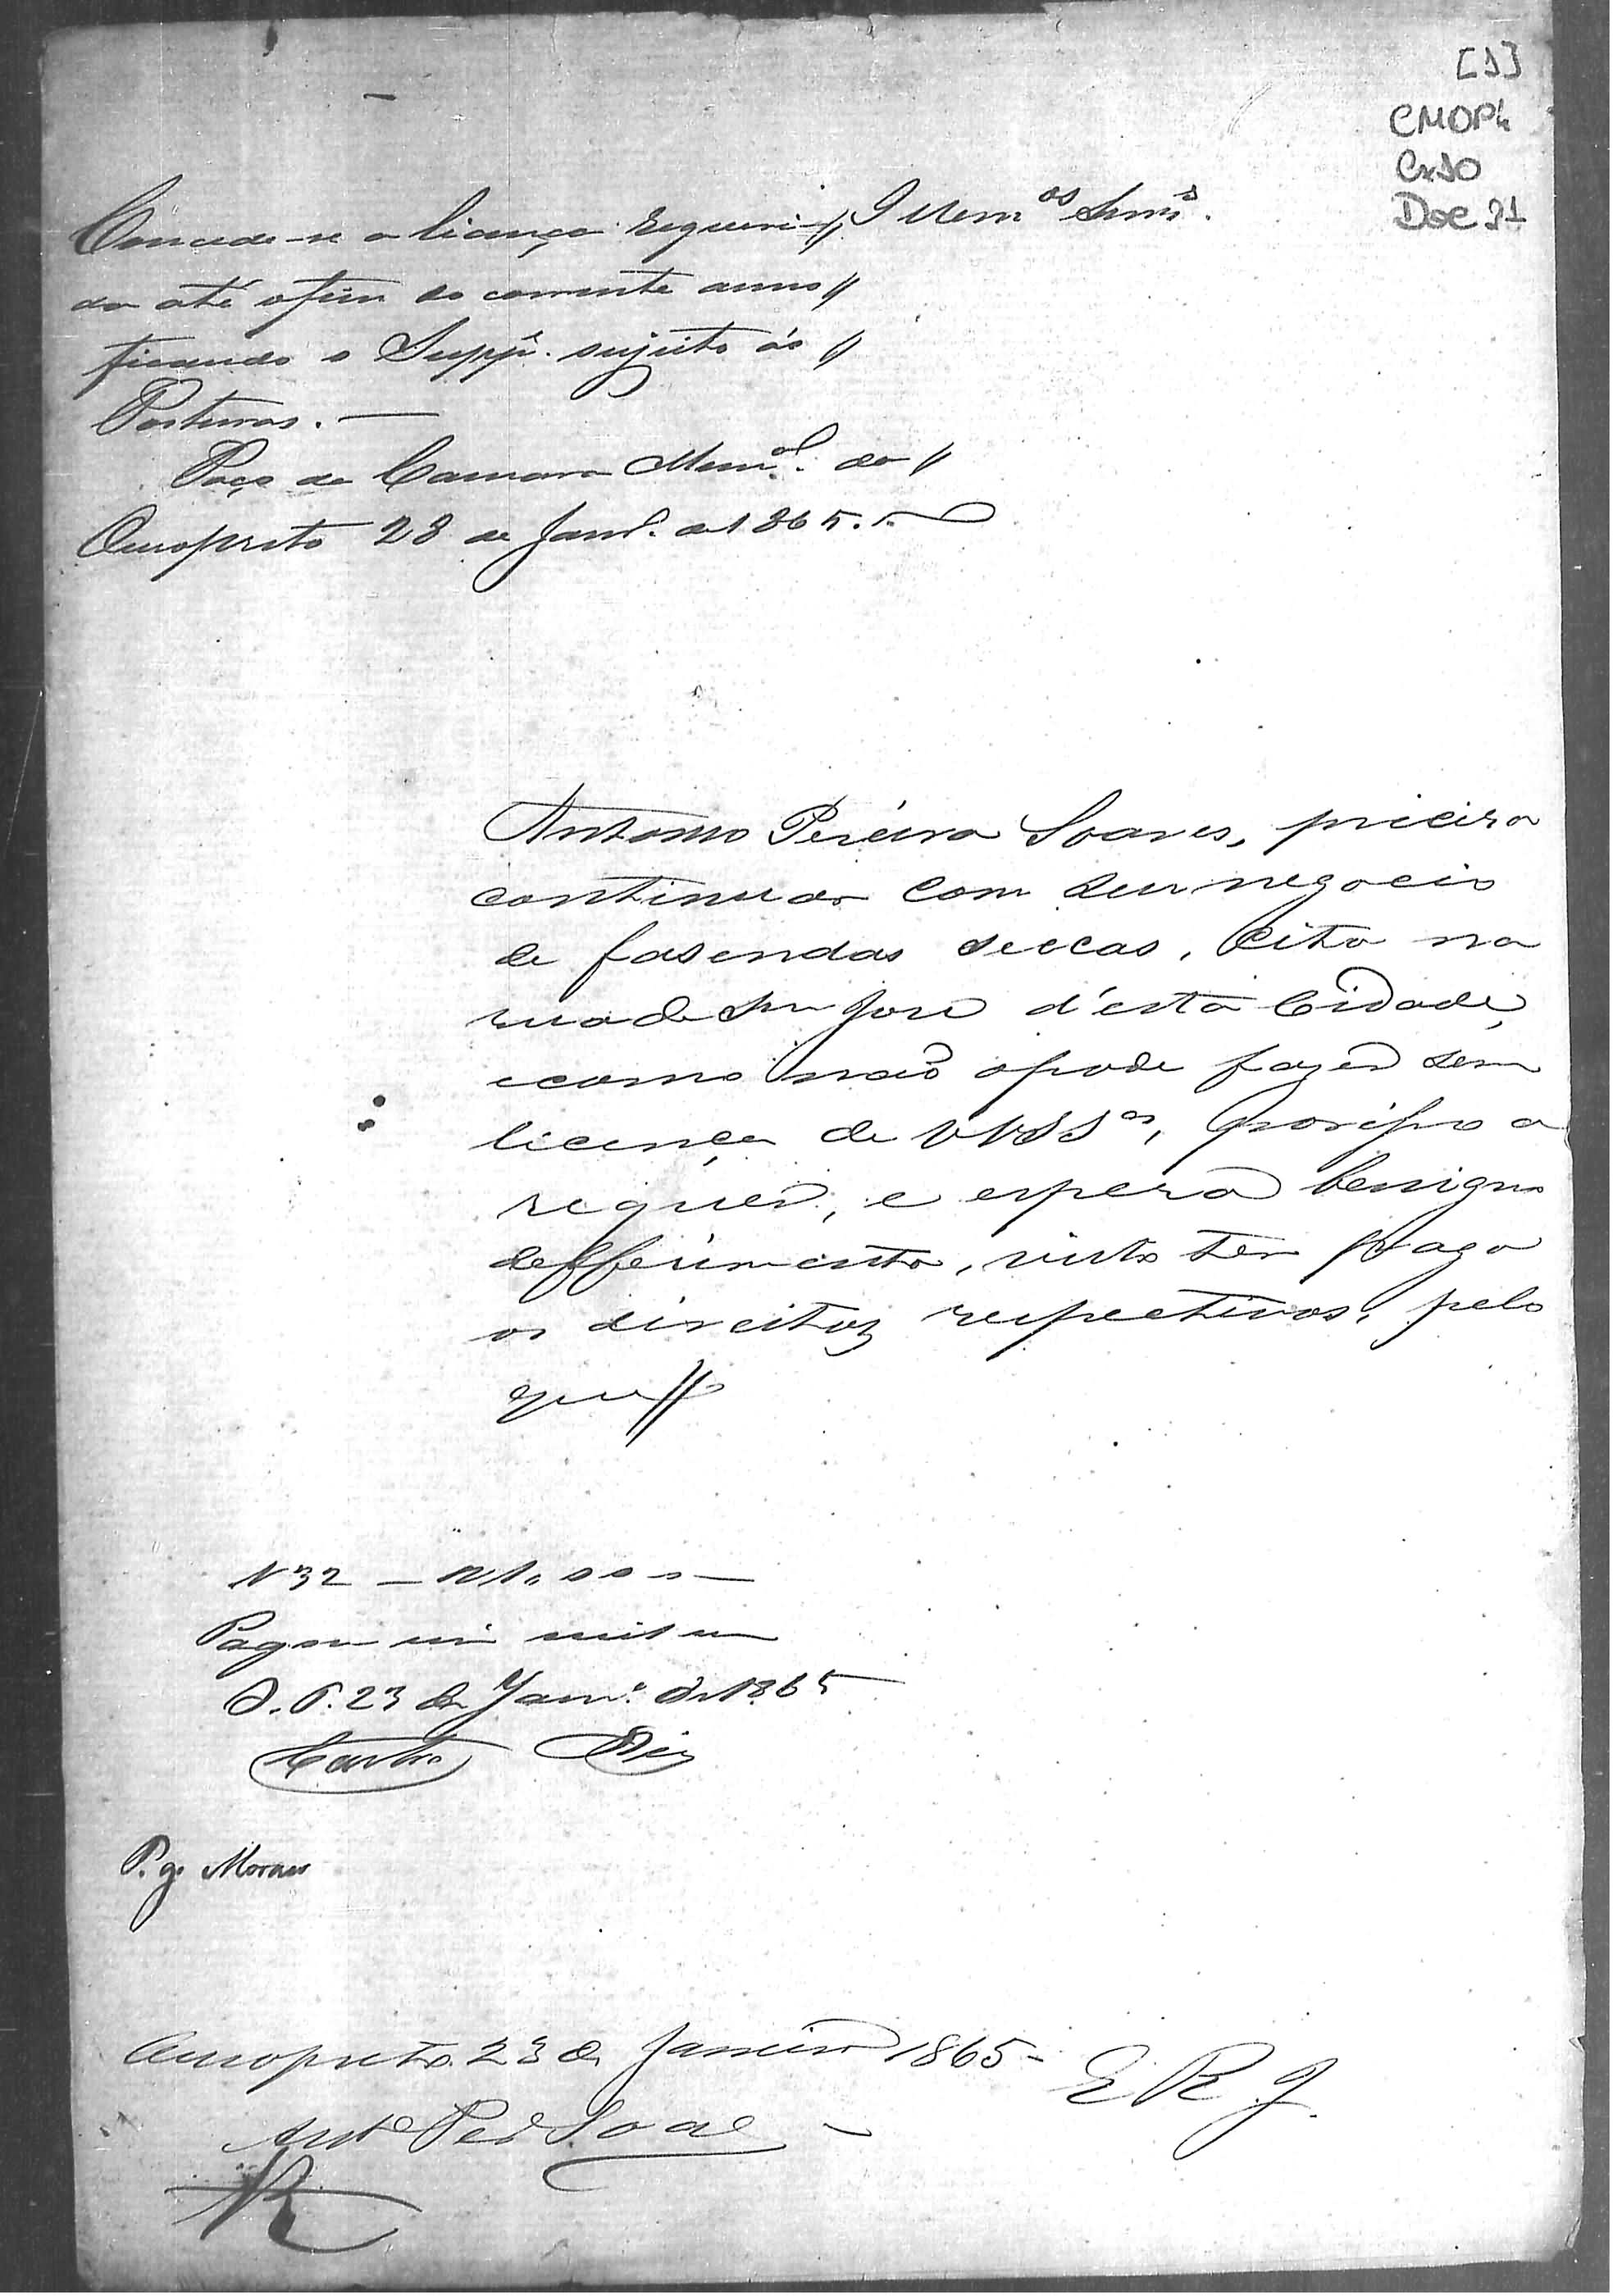 [1]
CMOP
Cx10
Doc 21
Concede-se a licença requeri//
da até o fim do corrente anno//
ficando o Suppe. sujeito ás//
Posturas.—
Paço da Camara Munal. do//
Ouropreto 28 de Janro. de 1865.
Illmos Snrs.
Antonio Pereira Soares, priciza
continuar com seu negocio
de fasendas seccas, cito na
rua de Sm José d'esta Cidade,
e como não o pode fazer sem
licença de VVSSas, por isso a
requer, e espera benigno
defferimento, visto ter pago
os direitos respectivos, pelo
que//
N 32 —
Pagou
O. P. 23 de Janro. de 1865
Castro
P. g. Moraes
Ouropreto 23 de Janeiro 1865-
E R J.
Anto Pera Soares